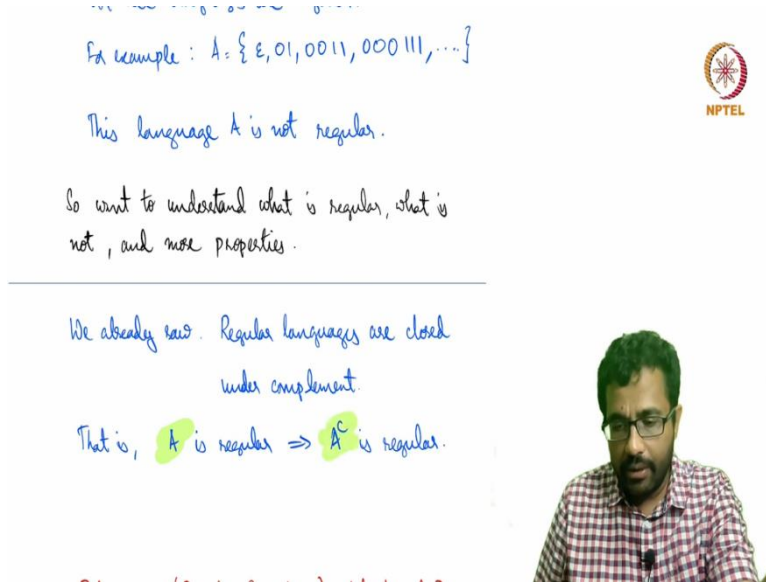 For example : A = { ε, 01, 0011, 000111, .... }
NPTEL
This language A is not regular.
So want to understand what is regular, what is
not, and more properties.
We already saw. Regular languages are closed
under complement.
That is, A is regular ⇒ Aᶜ is regular.